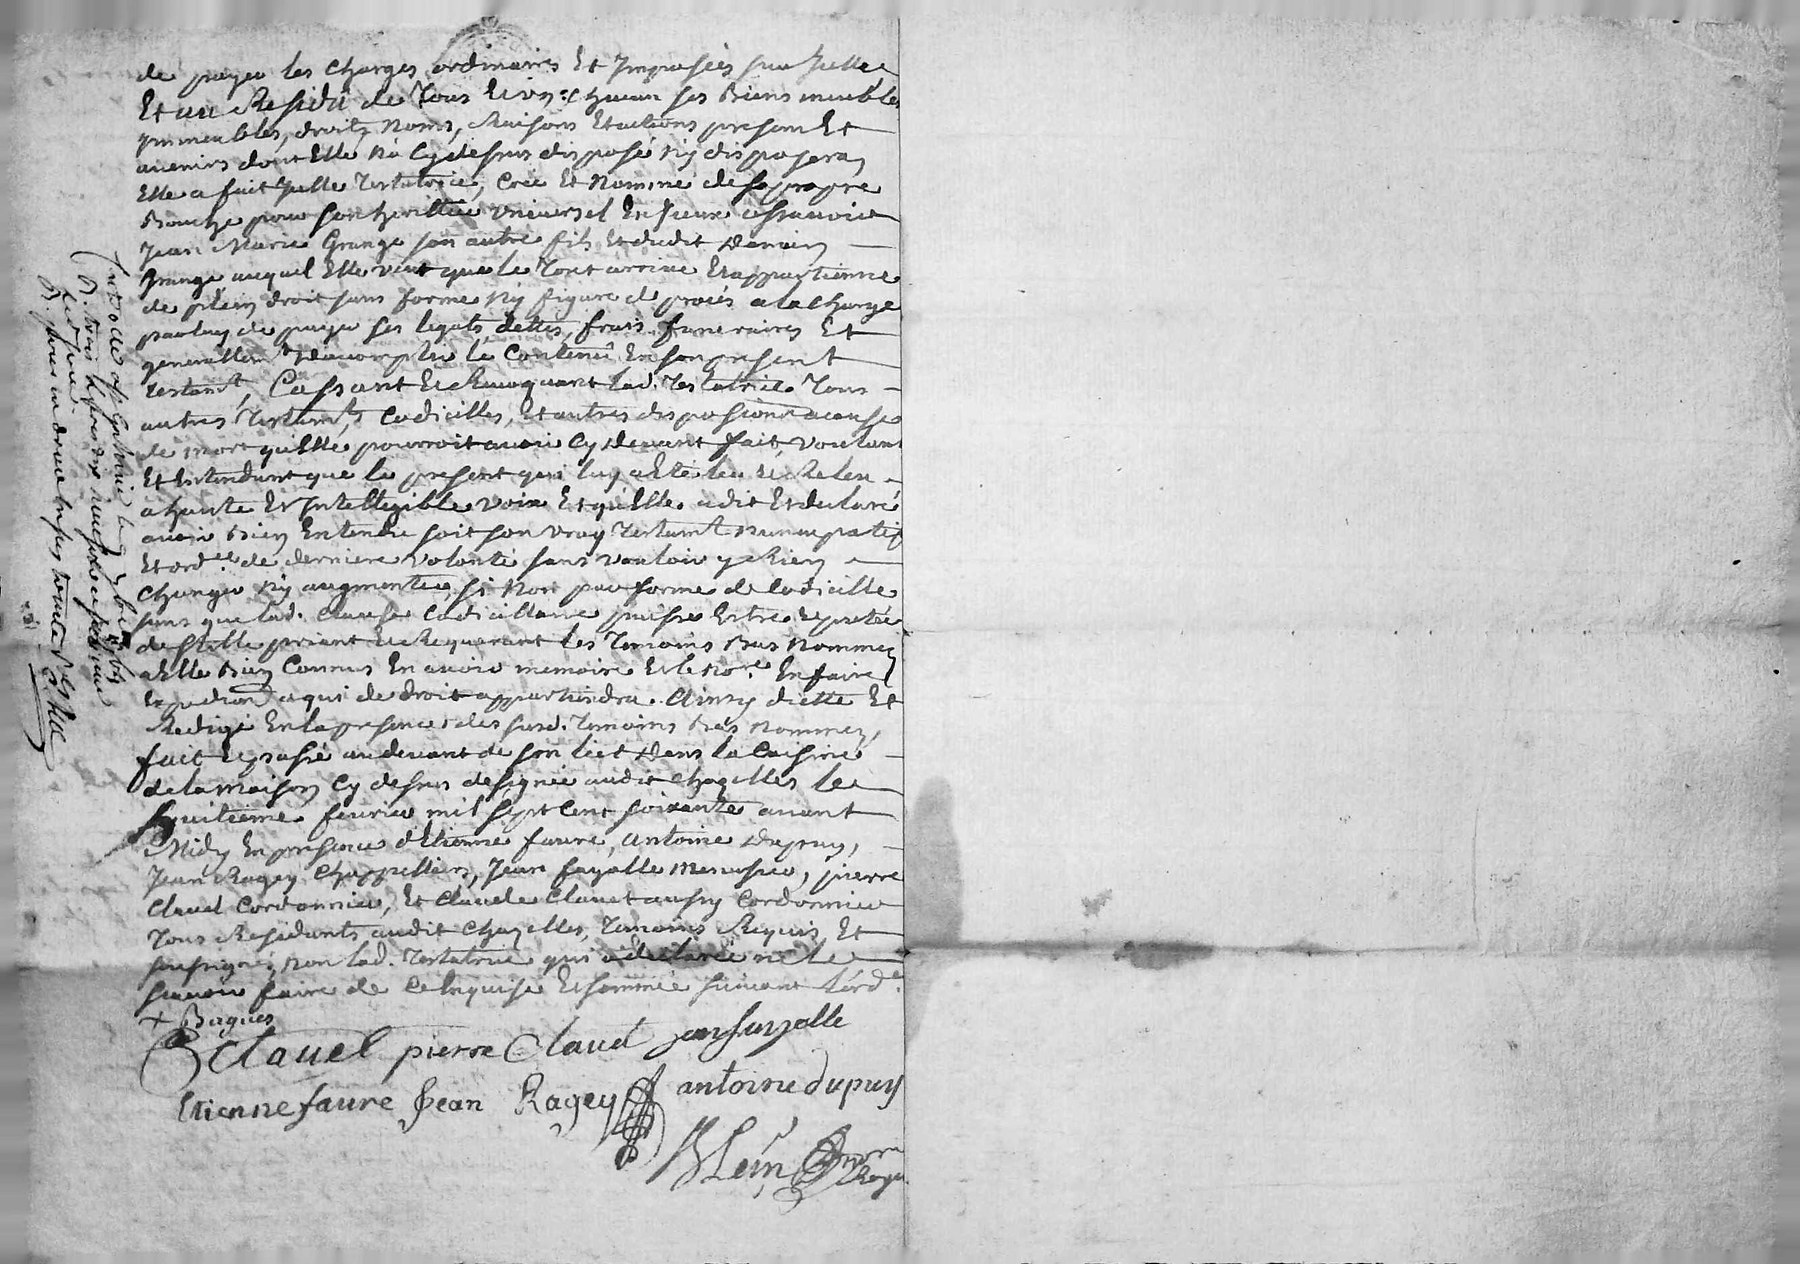 de payer les charges ordinaires Et Imposées sur Icelle
Et au Residu de Tous Et Vns chacun ses Biens meubles
ymmeubles, droits, Noms, Raisons Et actions present Et
avenirs dont Elle n'a Cy dessus disposé Ny disposera,
Elle a fait Icelle Testatrice, Cree Et Nommé de sa propre
Bouche pour son heritier Vniversel En seur assavoir
Jean Marie Grange son autre fils Et dudit Damien
Grange auquel Elle veut que le Tout arrive Et appartienne
de plein droit sans forme Ny figure de procès a la charge
par luy de payer ses legats dettes, frais funeraires Et
generallemt d'accomplir le Contenû En son present
Testamt, Cassant Et Revoquant lad. Testatrice Tous
autres Testamts, Codicilles, Et autres disposions a cause
de mort qu'Elle pourroit avoir Cy devant fait, voulant
Et Entendant que le present qui luy a Eté leu Et Releu
a haute Et Intelligible voix Et qu'Elle a dit Et declaré
avoir Bien Entendu soit son vray Testamt nuncupatif
Et ord.ce de derniere volonté sans vouloir y Rien
changer Ny augmenter, si Non par forme de Codicille
sans que lad. clause Codicillaire puisse Estre Reputée
de stille priant Et Requerant les Temoins Bas Nommez
a Elle Bien Connus En avoir memoire Et le No.re En faire
Expedion a qui de droit appartiendra. Ainsy dicté Et
Redigé En la presence des susd. Temoins Bas Nommez,
fait Et passé au devant de son lict Dans la Cuisine
de la maison Cy dessus designée audit Chazelles le
huitieme fevrier mil sept Cent soixante avant
Midy En presence d'Etienne faure, Antoine Dupuy,
Jean Ragey Chappelliers, Jean fayolle Menusier, pierre
Clavel Cordonnier, Et Claude Clavet aussy Cordonnier
Tous Residants audit Chazelles, Temoins Requis Et
soussignés, Non lad. Testatrice qui a declaré ne le
scavoir faire de Ce Enquise Et sommée suivant l'ord.e
+ Bagues
Clavel pierre Clavel jean fayolle
Etienne faure Jean Ragey antoine dupuy